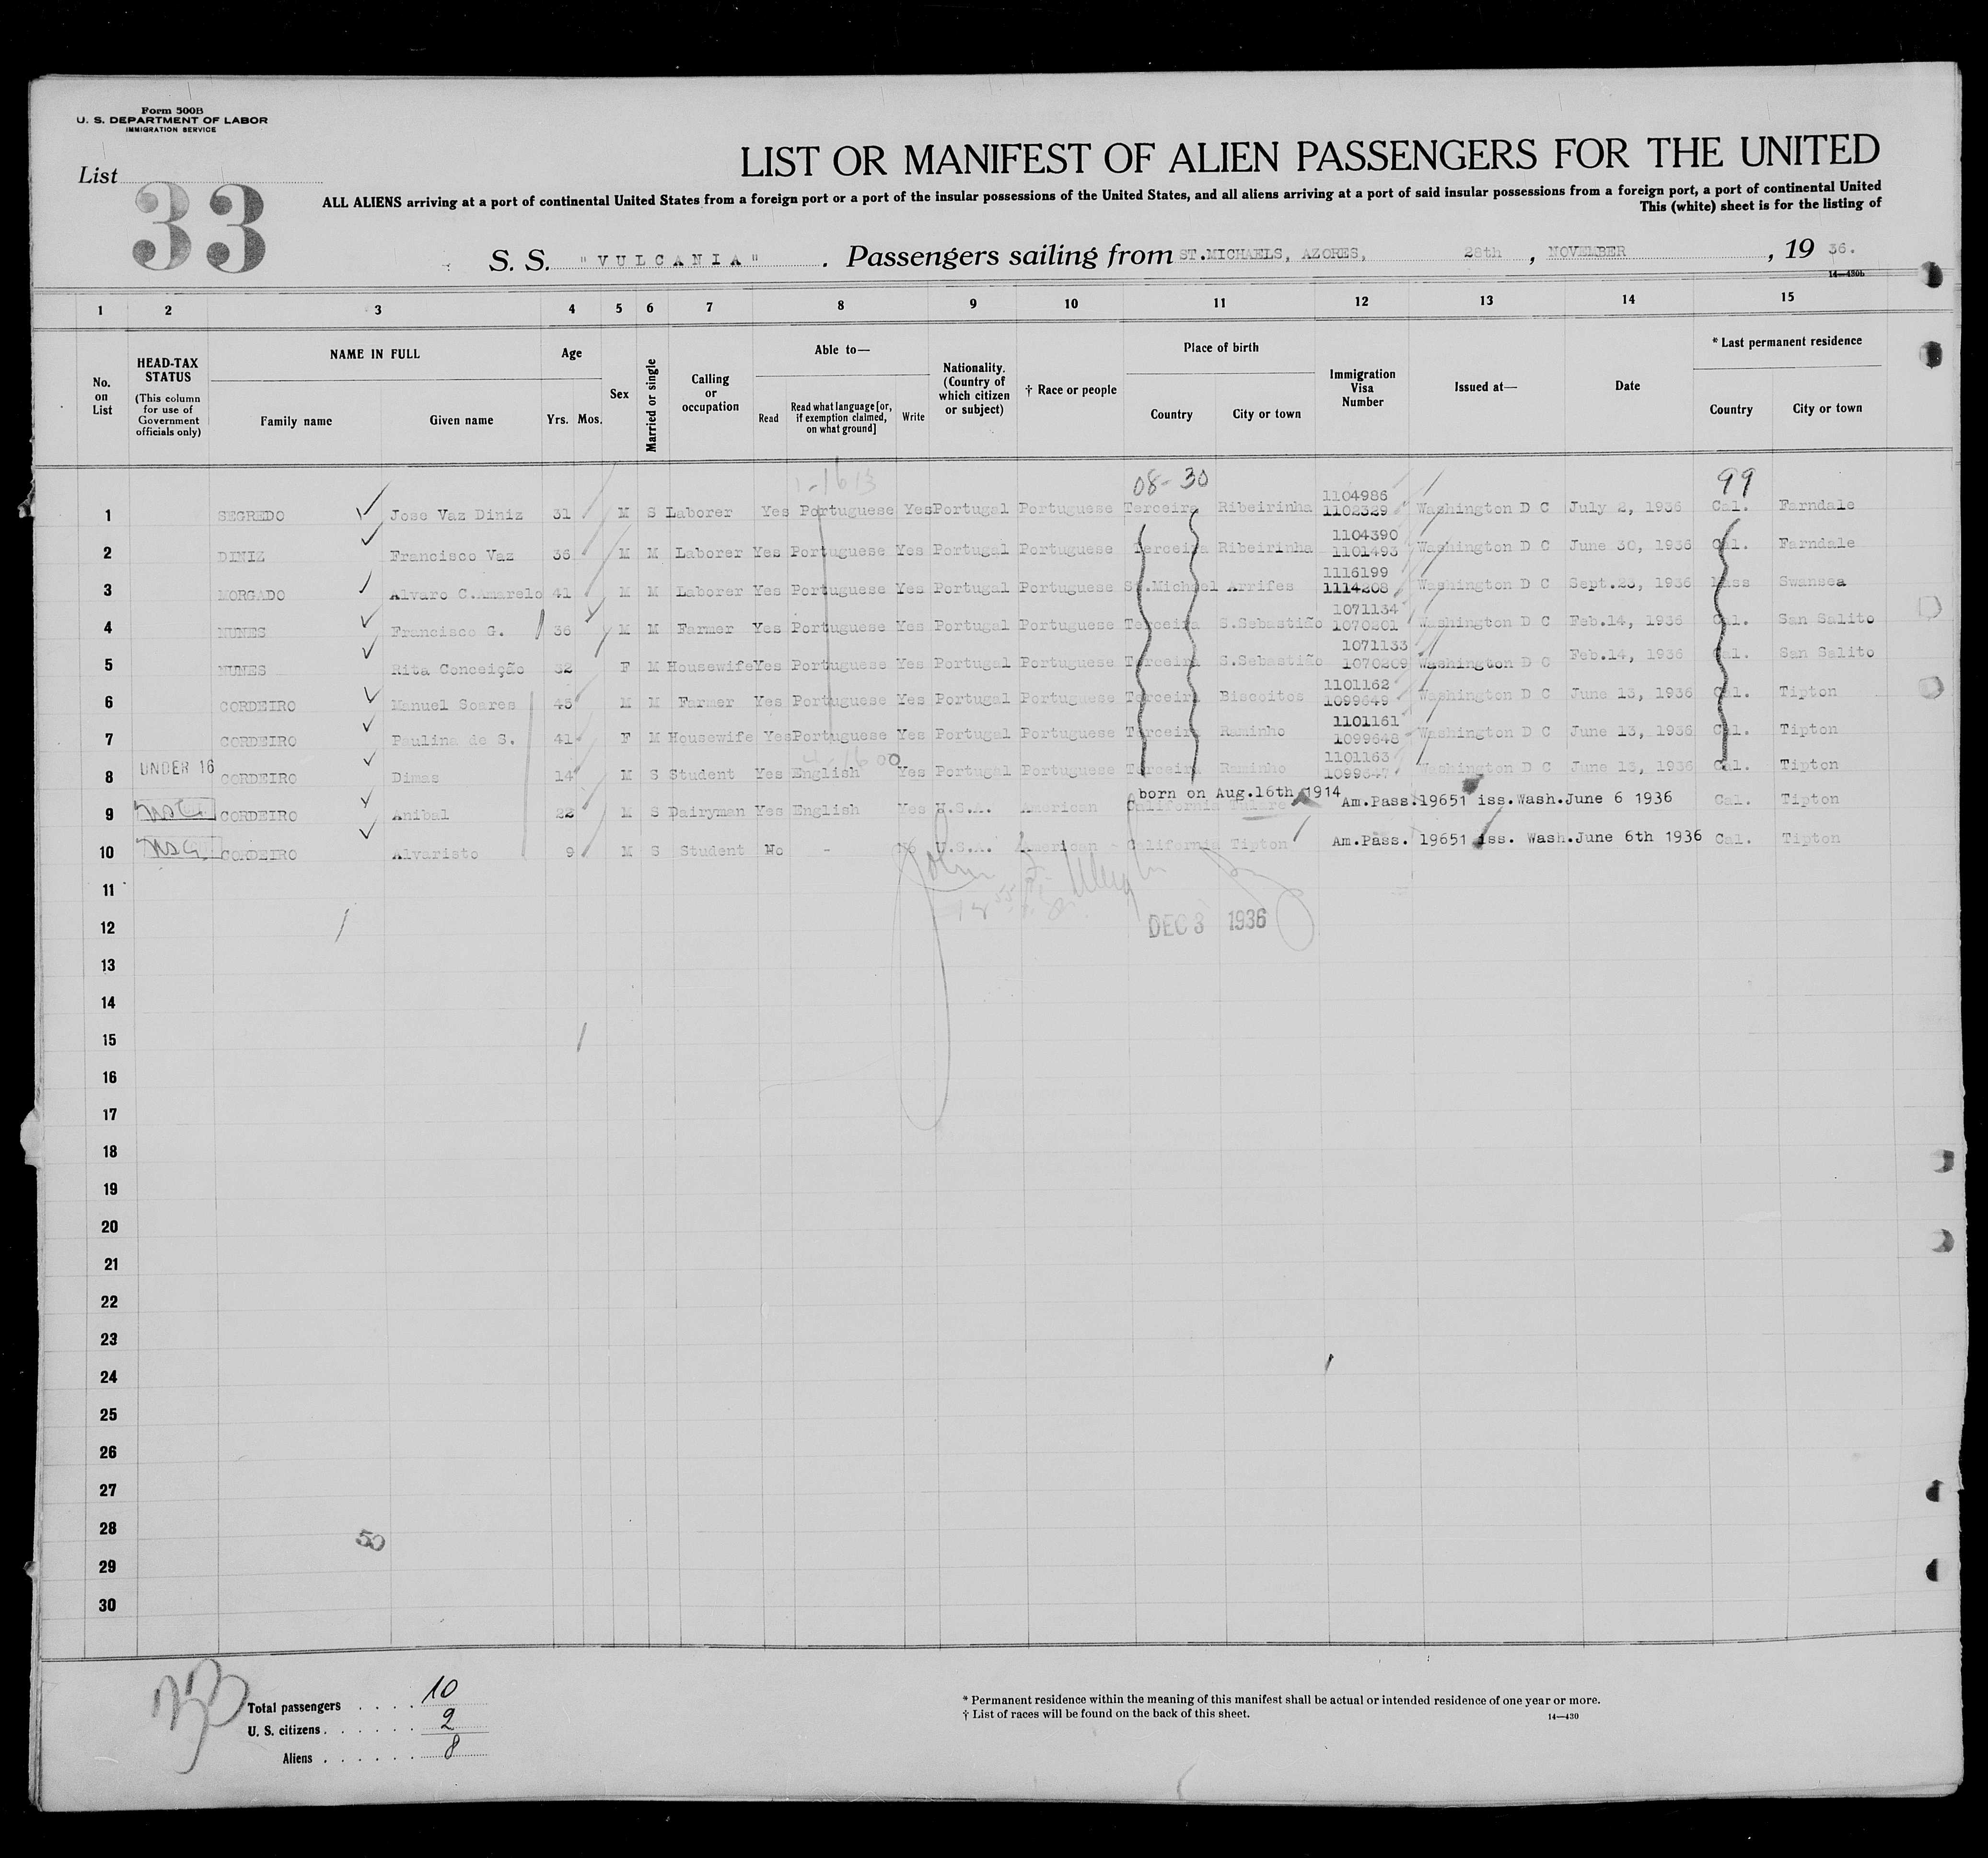 Form 500B
U. S. DEPARTMENT OF LABOR
IMMIGRATION SERVICE
List
33
LIST OR MANIFEST OF ALIEN PASSENGERS FOR THE UNITED
ALL ALIENS arriving at a port of continental United States from a foreign port or a port of the insular possessions of the United States, and all aliens arriving at a port of said insular possessions from a foreign port, a port of continental United
This (white) sheet is for the listing of
S. S. "VULCANIA" . Passengers sailing from ST.MICHAELS, AZORES, 28th , NOVEMBER , 19 36.
14—430b
1 2 3 4 5 6 7 8 9 10 11 12 13 14 15
No. on List
HEAD-TAX STATUS (This column for use of Government officials only)
NAME IN FULL
Family name Given name
Age
Yrs. Mos.
Sex
Married or single
Calling or occupation
Able to—
Read
Read what language [or, if exemption claimed, on what ground]
Write
Nationality. (Country of which citizen or subject)
† Race or people
Place of birth
Country City or town
Immigration Visa Number
Issued at—
Date
* Last permanent residence
Country City or town
08-30 99
1104986
1 SEGREDO Jose Vaz Diniz 31 M S Laborer Yes Portuguese Yes Portugal Portuguese Terceira Ribeirinha 1102329 Washington D C July 2, 1936 Cal. Farndale
1104390
2 DINIZ Francisco Vaz 36 M M Laborer Yes Portuguese Yes Portugal Portuguese Terceira Ribeirinha 1101493 Washington D C June 30, 1936 Cal. Farndale
1116199
3 MORGADO Alvaro C.Amarelo 41 M M Laborer Yes Portuguese Yes Portugal Portuguese St.Michael Arrifes 1114208 Washington D C Sept.23, 1936 Mass Swansea
1071134
4 NUNES Francisco G. 36 M M Farmer Yes Portuguese Yes Portugal Portuguese Terceira S.Sebastião 1070201 Washington D C Feb.14, 1936 Cal. San Salito
1071133
5 NUNES Rita Conceição 32 F M Housewife Yes Portuguese Yes Portugal Portuguese Terceira S.Sebastião 1070209 Washington D C Feb.14, 1936 Cal. San Salito
1101162
6 CORDEIRO Manuel Soares 45 M M Farmer Yes Portuguese Yes Portugal Portuguese Terceira Biscoitos 1099649 Washington D C June 13, 1936 Cal. Tipton
1101161
7 CORDEIRO Paulina de S. 41 F M Housewife Yes Portuguese Yes Portugal Portuguese Terceira Raminho 1099648 Washington D C June 13, 1936 Cal. Tipton
1101163
8 UNDER 16 CORDEIRO Dimas 14 M S Student Yes English Yes Portugal Portuguese Terceira Raminho 1099647 Washington D C June 13, 1936 Cal. Tipton
born on Aug.16th 1914
9 CORDEIRO Anibal 22 M S Dairyman Yes English Yes U.S.A. American California Tulare Am.Pass.19651 iss.Wash.June 6 1936 Cal. Tipton
10 CORDEIRO Alvaristo 9 M S Student No - No U.S.A. American California Tipton Am.Pass. 19651 iss. Wash.June 6th 1936 Cal. Tipton
11
12 DEC 3 1936
13
14
15
16
17
18
19
20
21
22
23
24
25
26
27
28
50
29
30
Total passengers . . . . 10
U. S. citizens . . . . . . 2
Aliens . . . . . . 8
* Permanent residence within the meaning of this manifest shall be actual or intended residence of one year or more.
† List of races will be found on the back of this sheet.
14—430